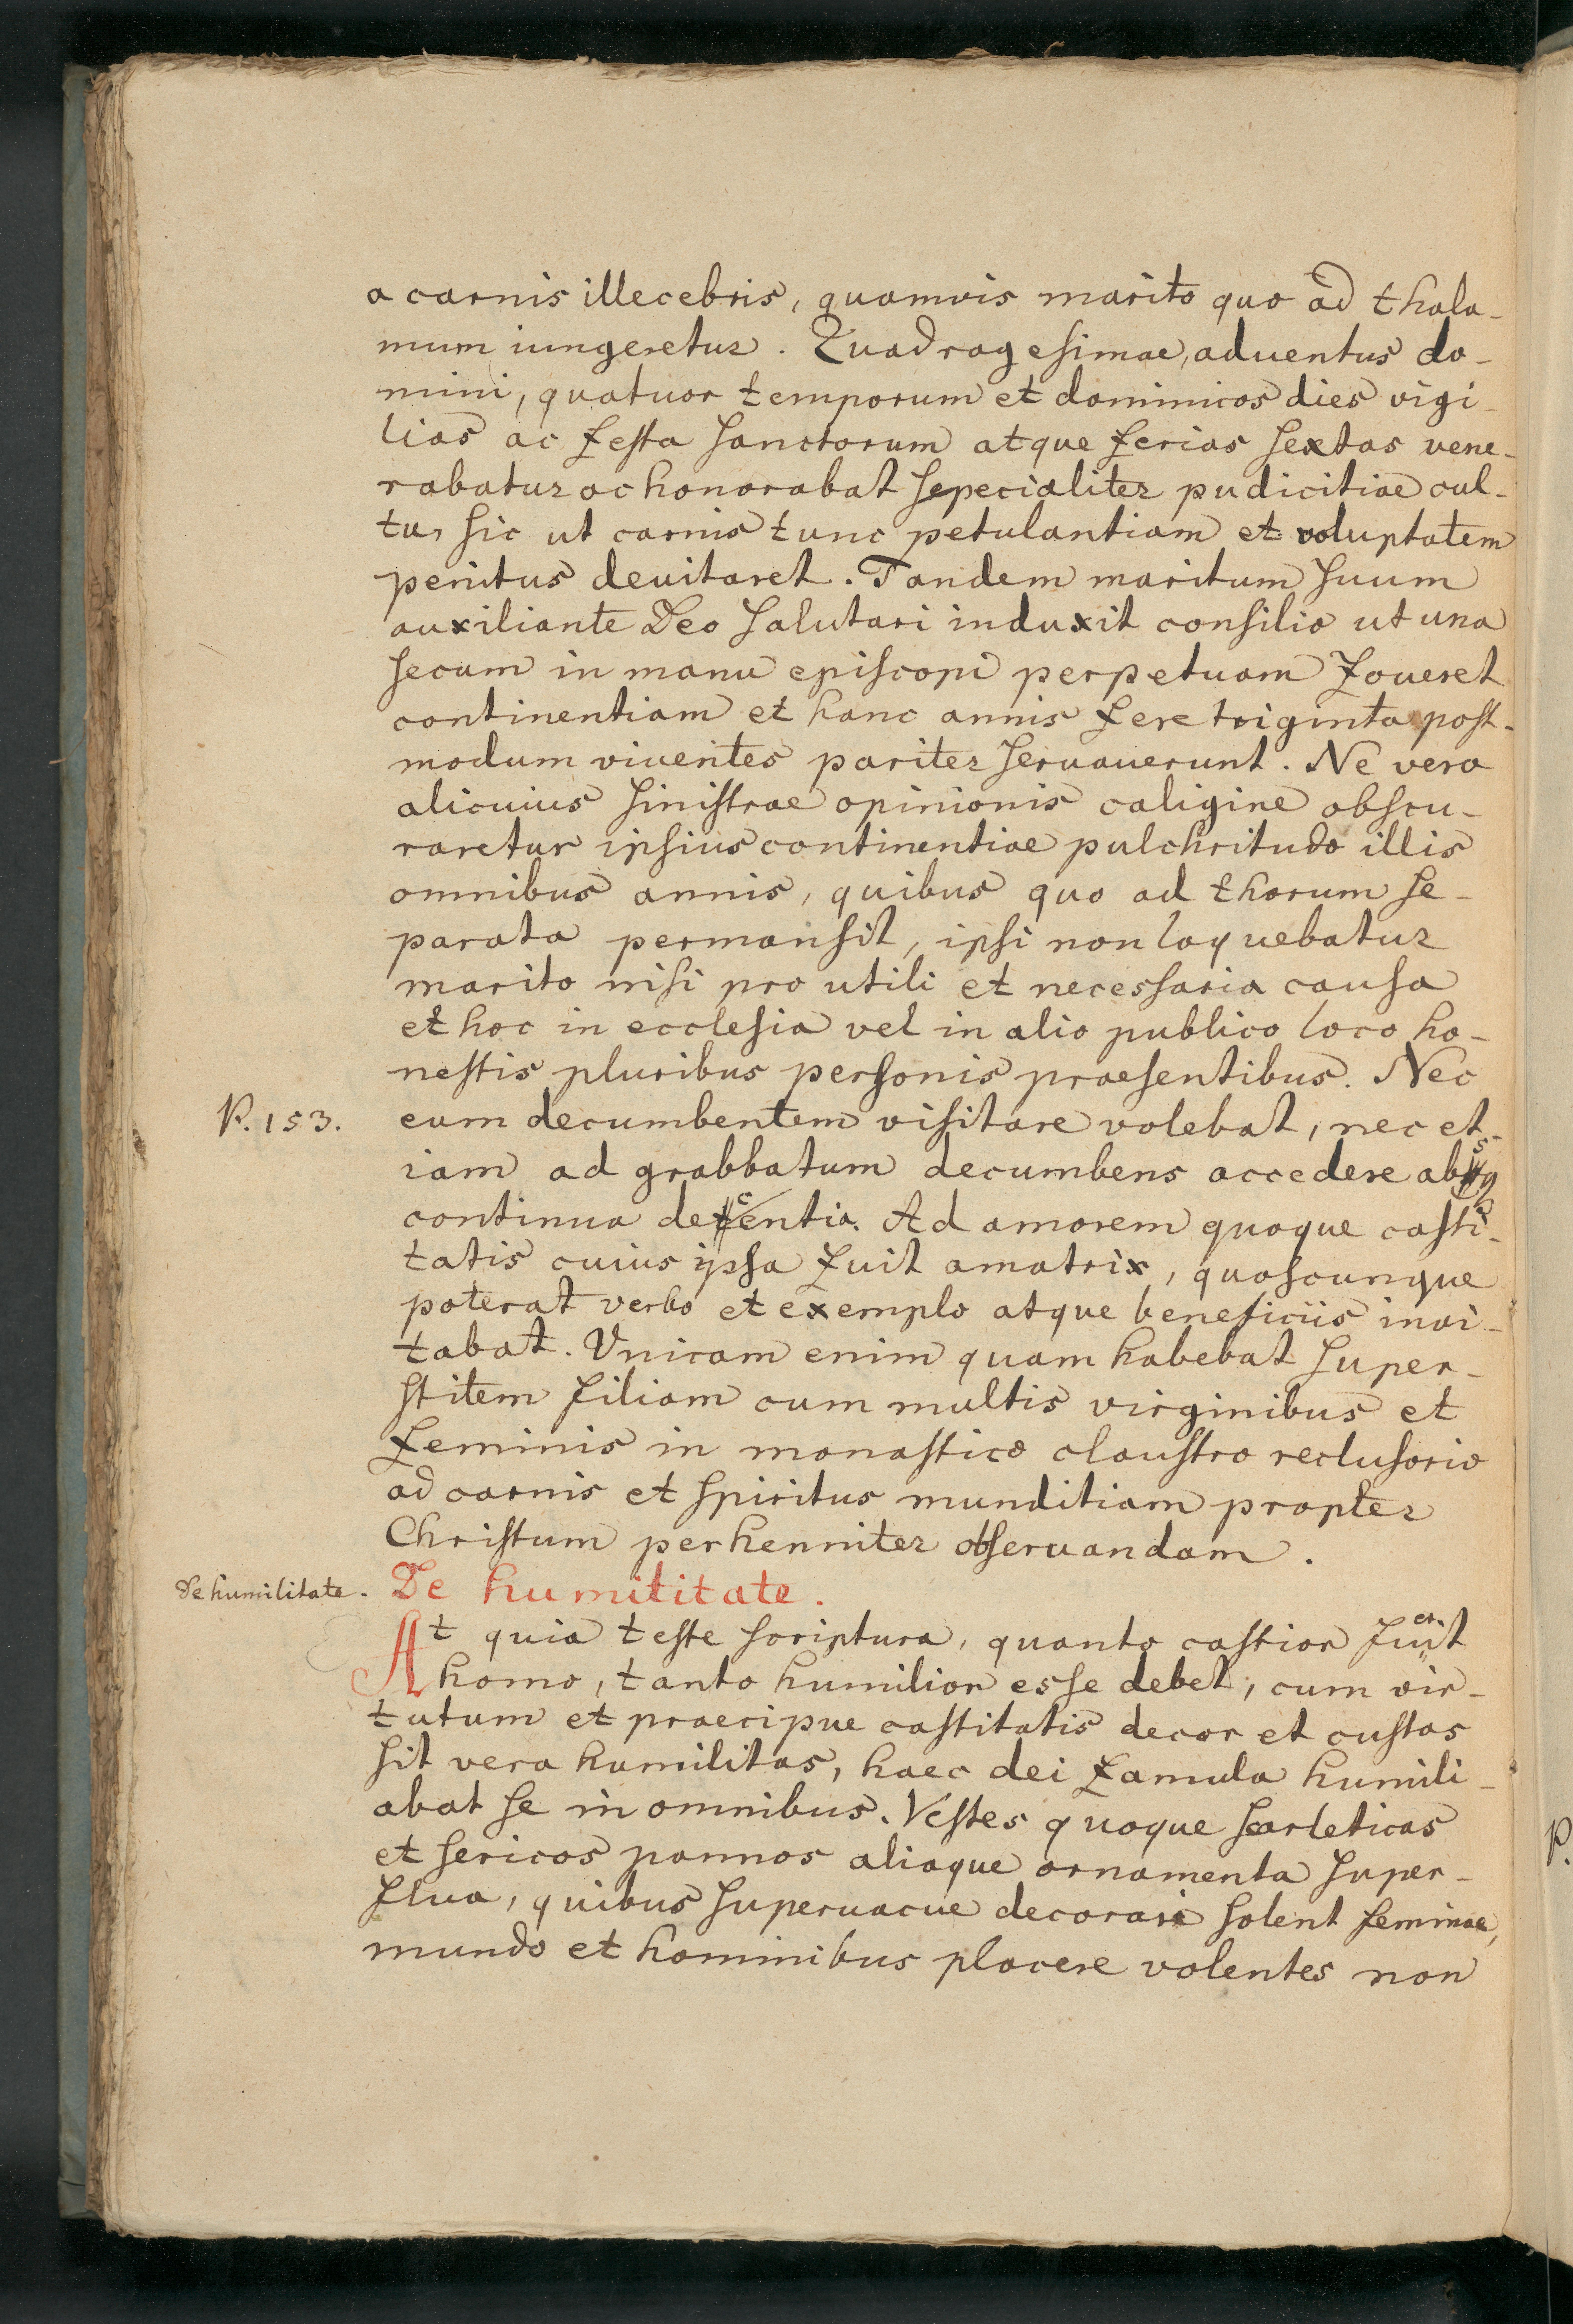 a carnis illecebris, quamvis marito quo ad thala-
mum iungeretur. Quadragesimae, aduentus do-
mini, quatuor temporum et dominicos dies vigi-
lias ac festa sanctorum atque ferias sextas vene-
rabatur ac honorabat sepecialiter pudicitiae cul-
tu, sic ut carnis tunc petulantiam et voluptatem
penitus deuitaret. Tandem maritum suum
auxiliante Deo salutari induxit consilio ut una
secum in manu episcopi perpetuam foueret
continentiam et hanc annis fere triginta post-
modum viuentes pariter seruauerunt. Ne vero
alicuius sinistrae opinionis caligine obscu-
raretur ipsius continentiae pulchritudo illis
omnibus annis, quibus quo ad thorum se-
parata permansit, ipsi non loquebatur
marito nisi pro utili et necessaria causa
et hoc in ecclesia vel in alio publico loco ho-
nestis pluribus personis praesentibus. Nec
P. 153. eum decumbentem visitare volebat, nec et-
iam ad grabbatum decumbens accedere absq
continua decentia. Ad amorem quoque casti-
tatis cuius ipsa fuit amatrix, quoscunque
poterat verbo et exemplo atque beneficiis inui-
tabat. Vnicam enim quam habebat super-
stitem filiam cum multis virginibus et
feminis in monastico claustro reclusorio
ad carnis et spiritus munditiam propter
Christum perhenniter obseruandam.
De humilitate. De humititate.
At quia teste scriptura, quanto castior fuerit
homo, tanto humilior esse debet, cum vir-
tutum et praecipue castitatis decor et custos
sit vera humilitas, haec dei famula humili-
abat se in omnibus. Vestes quoque scarleticas
et sericos pannos aliaque ornamenta super-
flua, quibus superuacue decorari solent feminae,
mundo et hominibus placere volentes non
P.